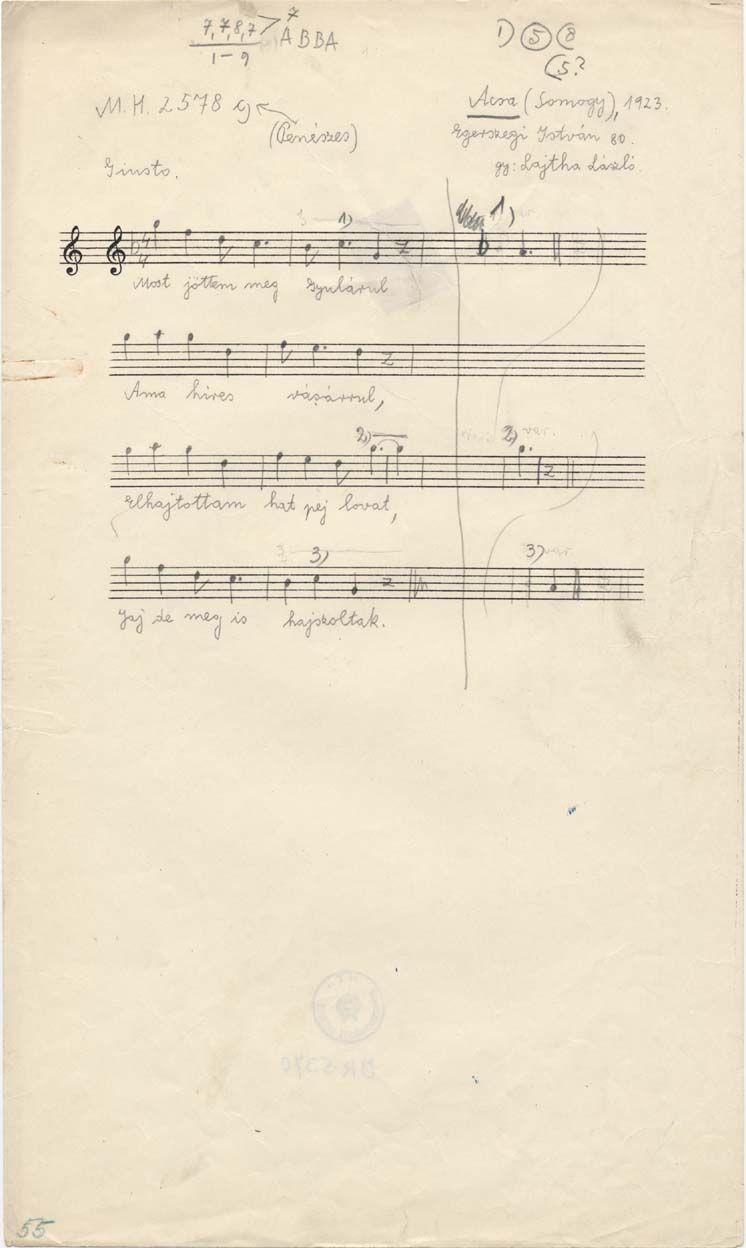 7,7,8,7 7
1-9 ABBA
1) 5 (8
(5?
M.H. 2578 c)
(Penészes)
Acsa (Somogy), 1923.
Egerszegi István 80.
gy: Lajtha László
Giusto.
1)
1) var
Most jöttem meg Gyulárul
Ama hires vásárrul,
2)
2) var.
Elhajtottam hat pej lovat,
3)
3) var
Jaj de meg is hajszoltak.
55